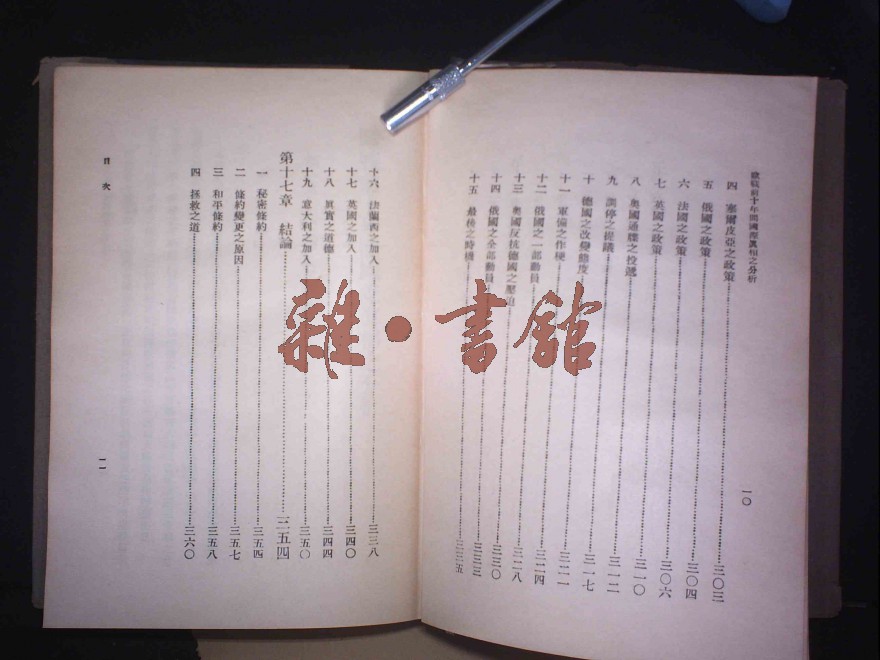 歐戰前十年間國際真相之分析
四　塞爾皮亞之政策……三〇三
五　俄國之政策……三〇四
六　法國之政策……三〇六
七　英國之政策……
八　奧國通牒之投遞……三一〇
九　調停之提議……三一二
十　德國之改變態度……三一七
十一　軍備之作梗……三二一
十二　俄國之一部動員……三二四
十三　奧國反抗德國之壓迫……三二八
十四　俄國之全部動員……三三〇
十五　最後之時機……
一〇
十六　法蘭西之加入……三三八
十七　英國之加入……三四〇
十八　真實之道德……三四四
十九　意大利之加入……三五〇
第十七章　結論……三五四
一　秘密條約……三五四
二　條約變更之原因……三五七
三　和平條約……三五八
四　拯救之道……三六〇
目次
一一
雜•書館